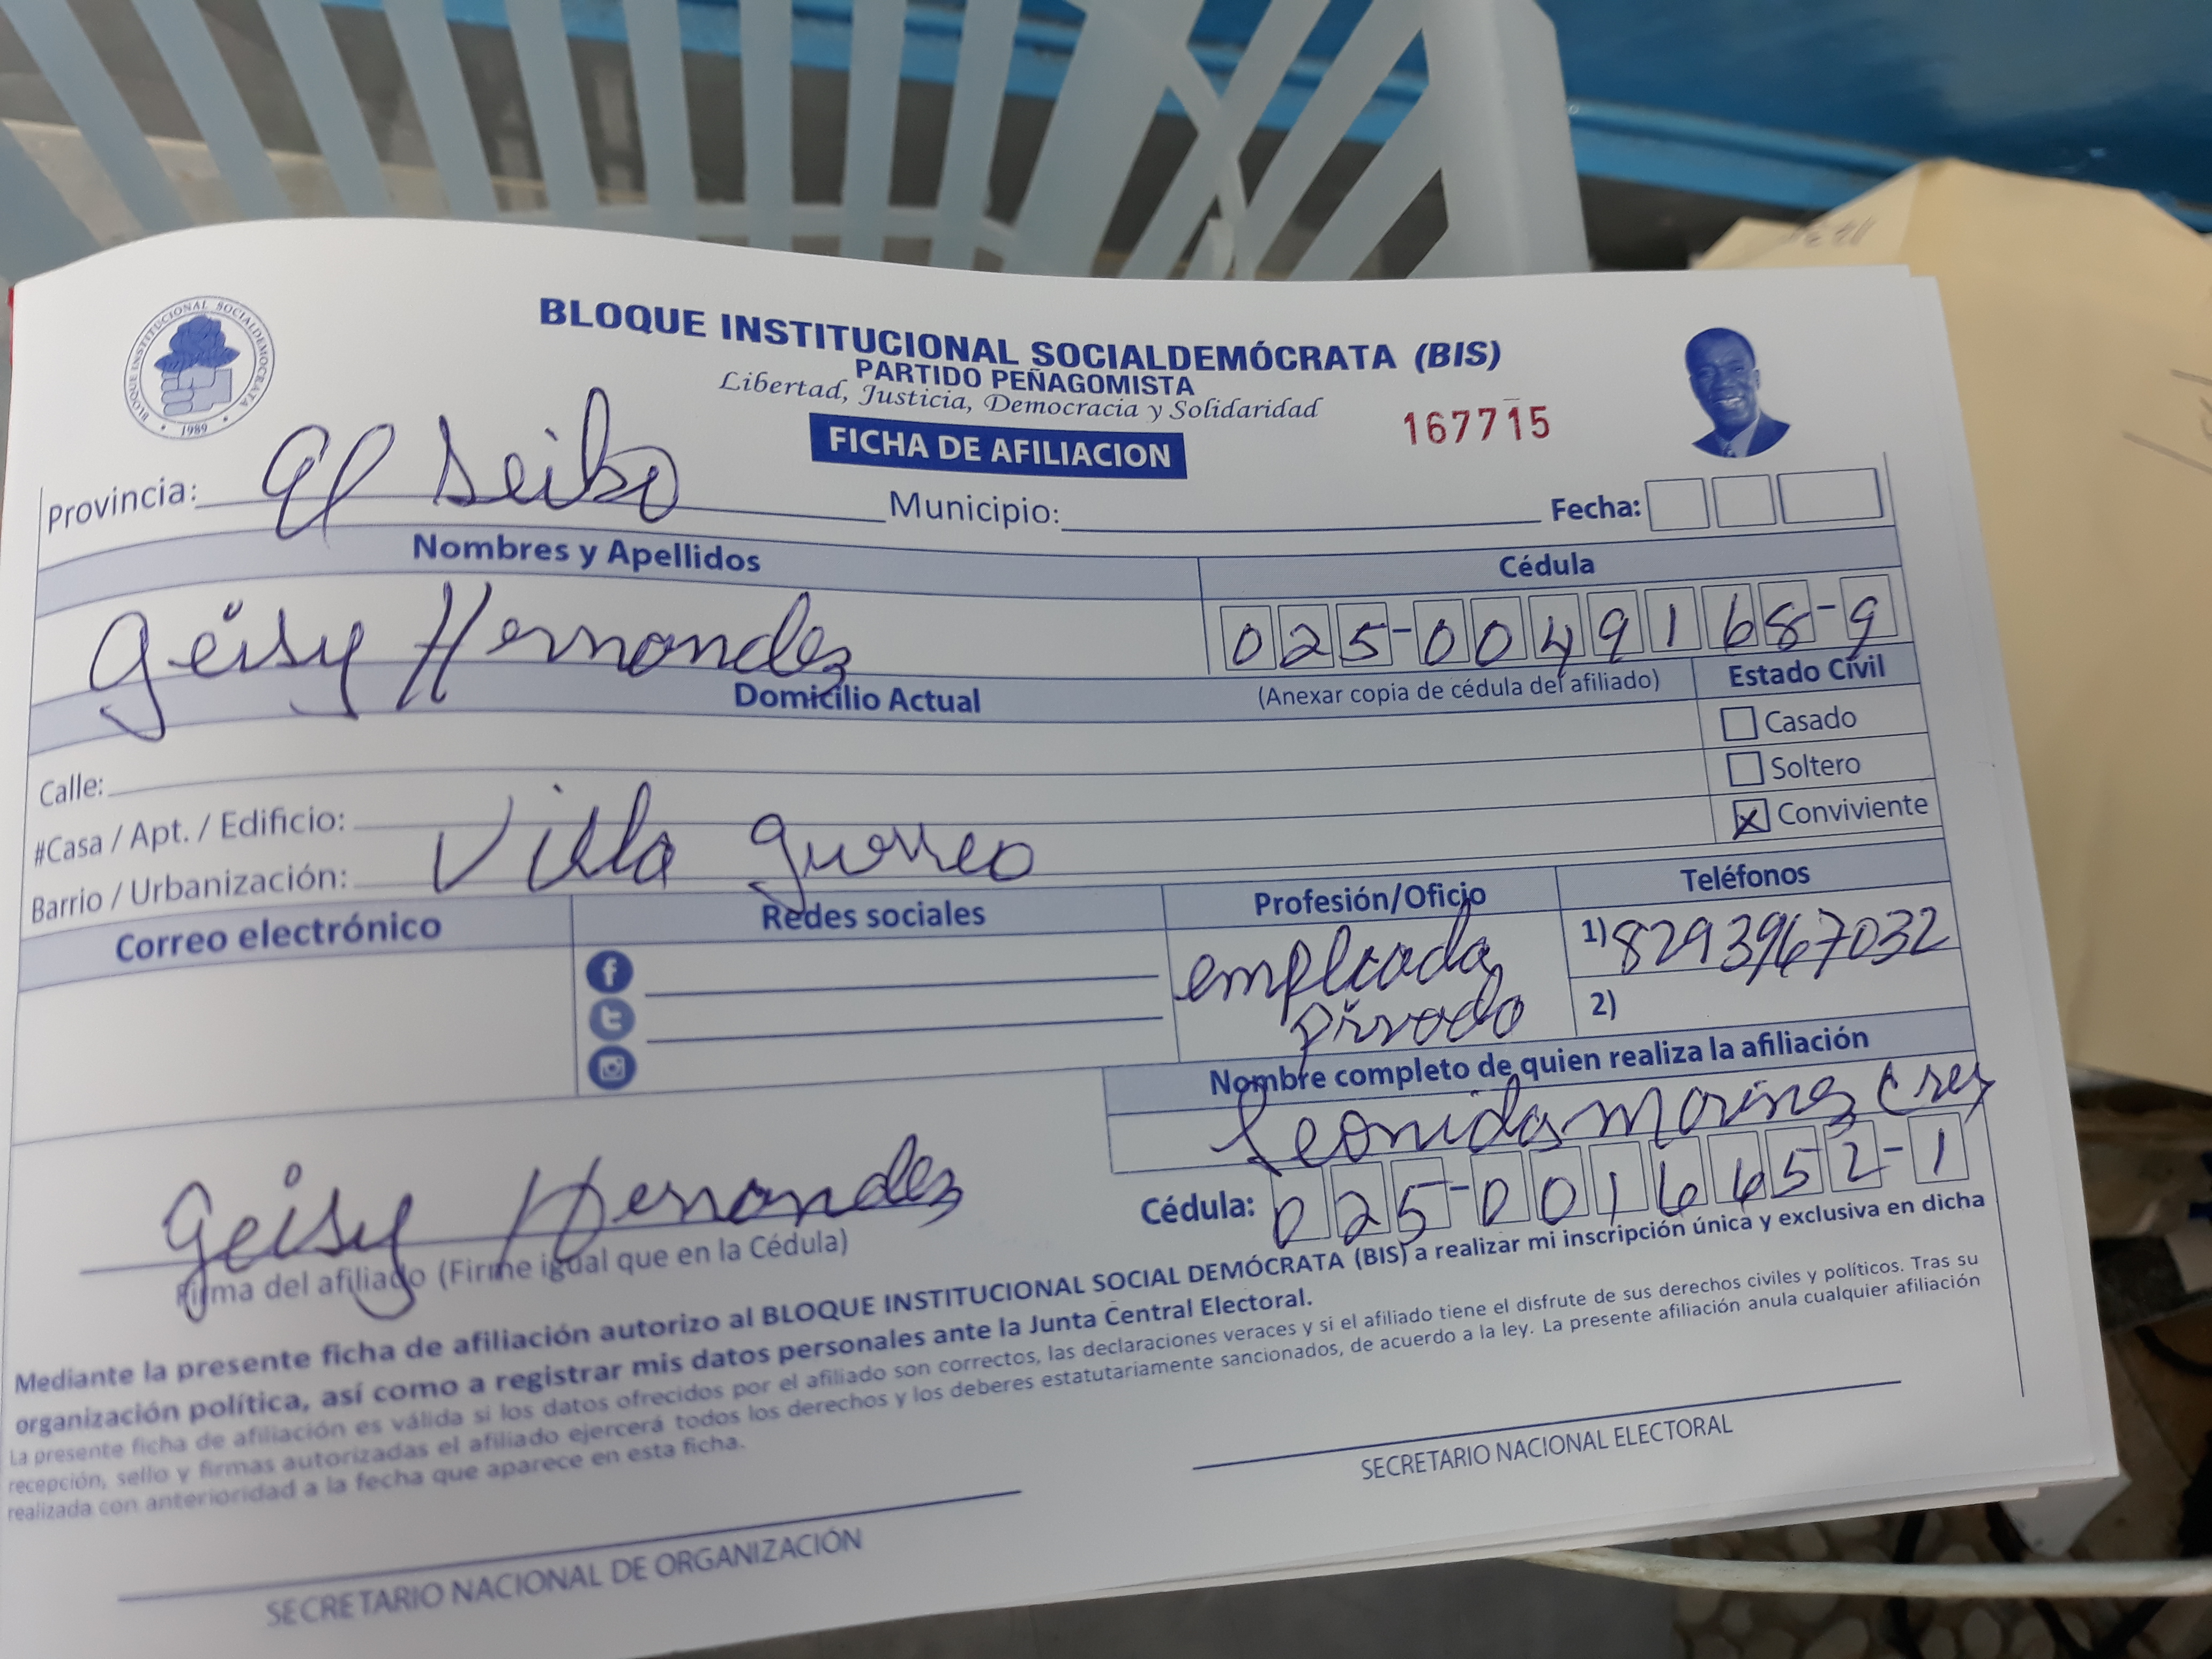 BLOQUE INSTITUCIONAL SOCIALDEMÓCRATA (BIS)
PARTIDO PEÑAGOMISTA
Libertad, Justicia, Democracia y Solidaridad
BLOQUE INSTITUCIONAL SOCIALDEMOCRATA
• 1989 •
FICHA DE AFILIACION
167715
Provincia: El Seibo Municipio: Fecha:
Nombres y Apellidos Cédula
Geisy Hernandez 025-0049168-9
Domicilio Actual (Anexar copia de cédula del afiliado) Estado Civil
Casado
Calle:
Soltero
#Casa / Apt. / Edificio:
X Conviviente
Barrio / Urbanización: Villa guerreo
Correo electrónico Redes sociales Profesión/Oficio Teléfonos
empleada 1) 8293967032
privado 2)
Nombre completo de quien realiza la afiliación
Leonidas
Cédula: 025-0016652-1
Geisy Hernandez
Firma del afiliado (Firme igual que en la Cédula)
Mediante la presente ficha de afiliación autorizo al BLOQUE INSTITUCIONAL SOCIAL DEMÓCRATA (BIS) a realizar mi inscripción única y exclusiva en dicha
organización política, así como a registrar mis datos personales ante la Junta Central Electoral.
La presente ficha de afiliación es válida si los datos ofrecidos por el afiliado son correctos, las declaraciones veraces y si el afiliado tiene el disfrute de sus derechos civiles y políticos. Tras su
recepción, sello y firmas autorizadas el afiliado ejercerá todos los derechos y los deberes estatutariamente sancionados, de acuerdo a la ley. La presente afiliación anula cualquier afiliación
realizada con anterioridad a la fecha que aparece en esta ficha.
SECRETARIO NACIONAL DE ORGANIZACIÓN SECRETARIO NACIONAL ELECTORAL